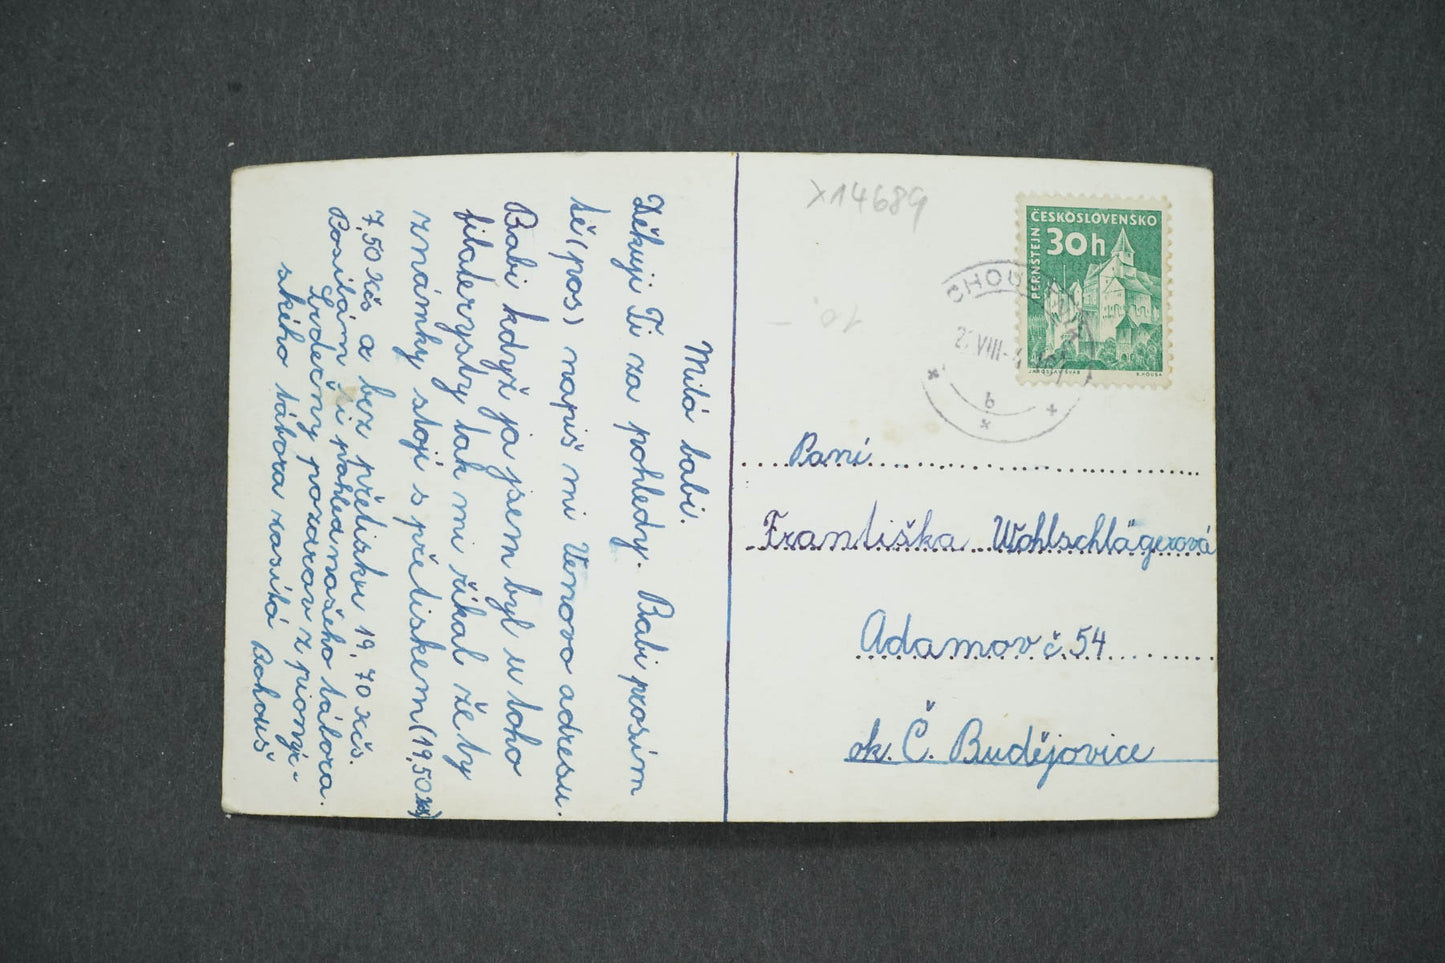 Milá babi.
Děkuji Ti za pohledy. Babi prosím
tě (pos) napiš mi Venovo adresu.
Babi když ja jsem byl u toho
filaterysty tak mi říkal že ty
známky stojí s přetiskem (19,50 Kčs)
7,50 Kčs a bez přetisku 19,70 Kčs.
Posílám i pohled našeho tábora.
Srdečný pozdrav z pionýr-
ského tábora zasílá Bohouš
X14689
ČESKOSLOVENSKO
30h
PERNŠTEJN
JAROSLAV ŠVÁB
B. HOUSA
10.-
CHOU
VIII
b
Paní
Františka Wohlschlägerová
Adamov č 54
ok. Č. Budějovice